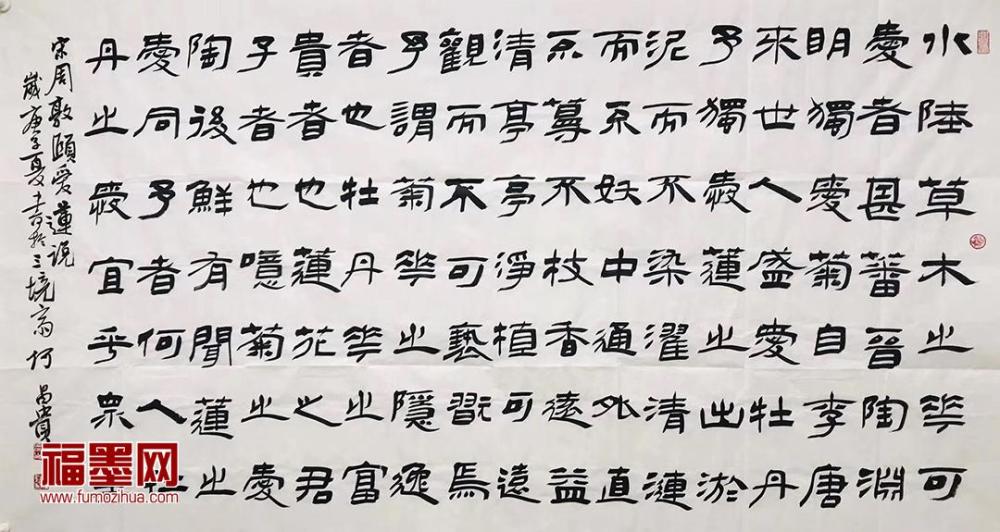 水陸草木之華可
愛者甚蕃晉陶淵
明獨愛菊自李唐
來世人盛愛牡丹
予獨愛蓮之出淤
泥而不染濯清漣
而不妖中通外直
不蔓不枝香遠益
清亭亭淨植可遠
觀而不可褻翫焉
予謂菊華之隱逸
者也牡丹華之富
貴者也蓮花之君
子者也噫菊之愛
陶後鮮有聞蓮之
愛同予者何人
丹之愛宜乎眾
宋周敦頤愛蓮說
歲庚子夏書於三境齋何昌貴
福墨网
www.fumozihua.com